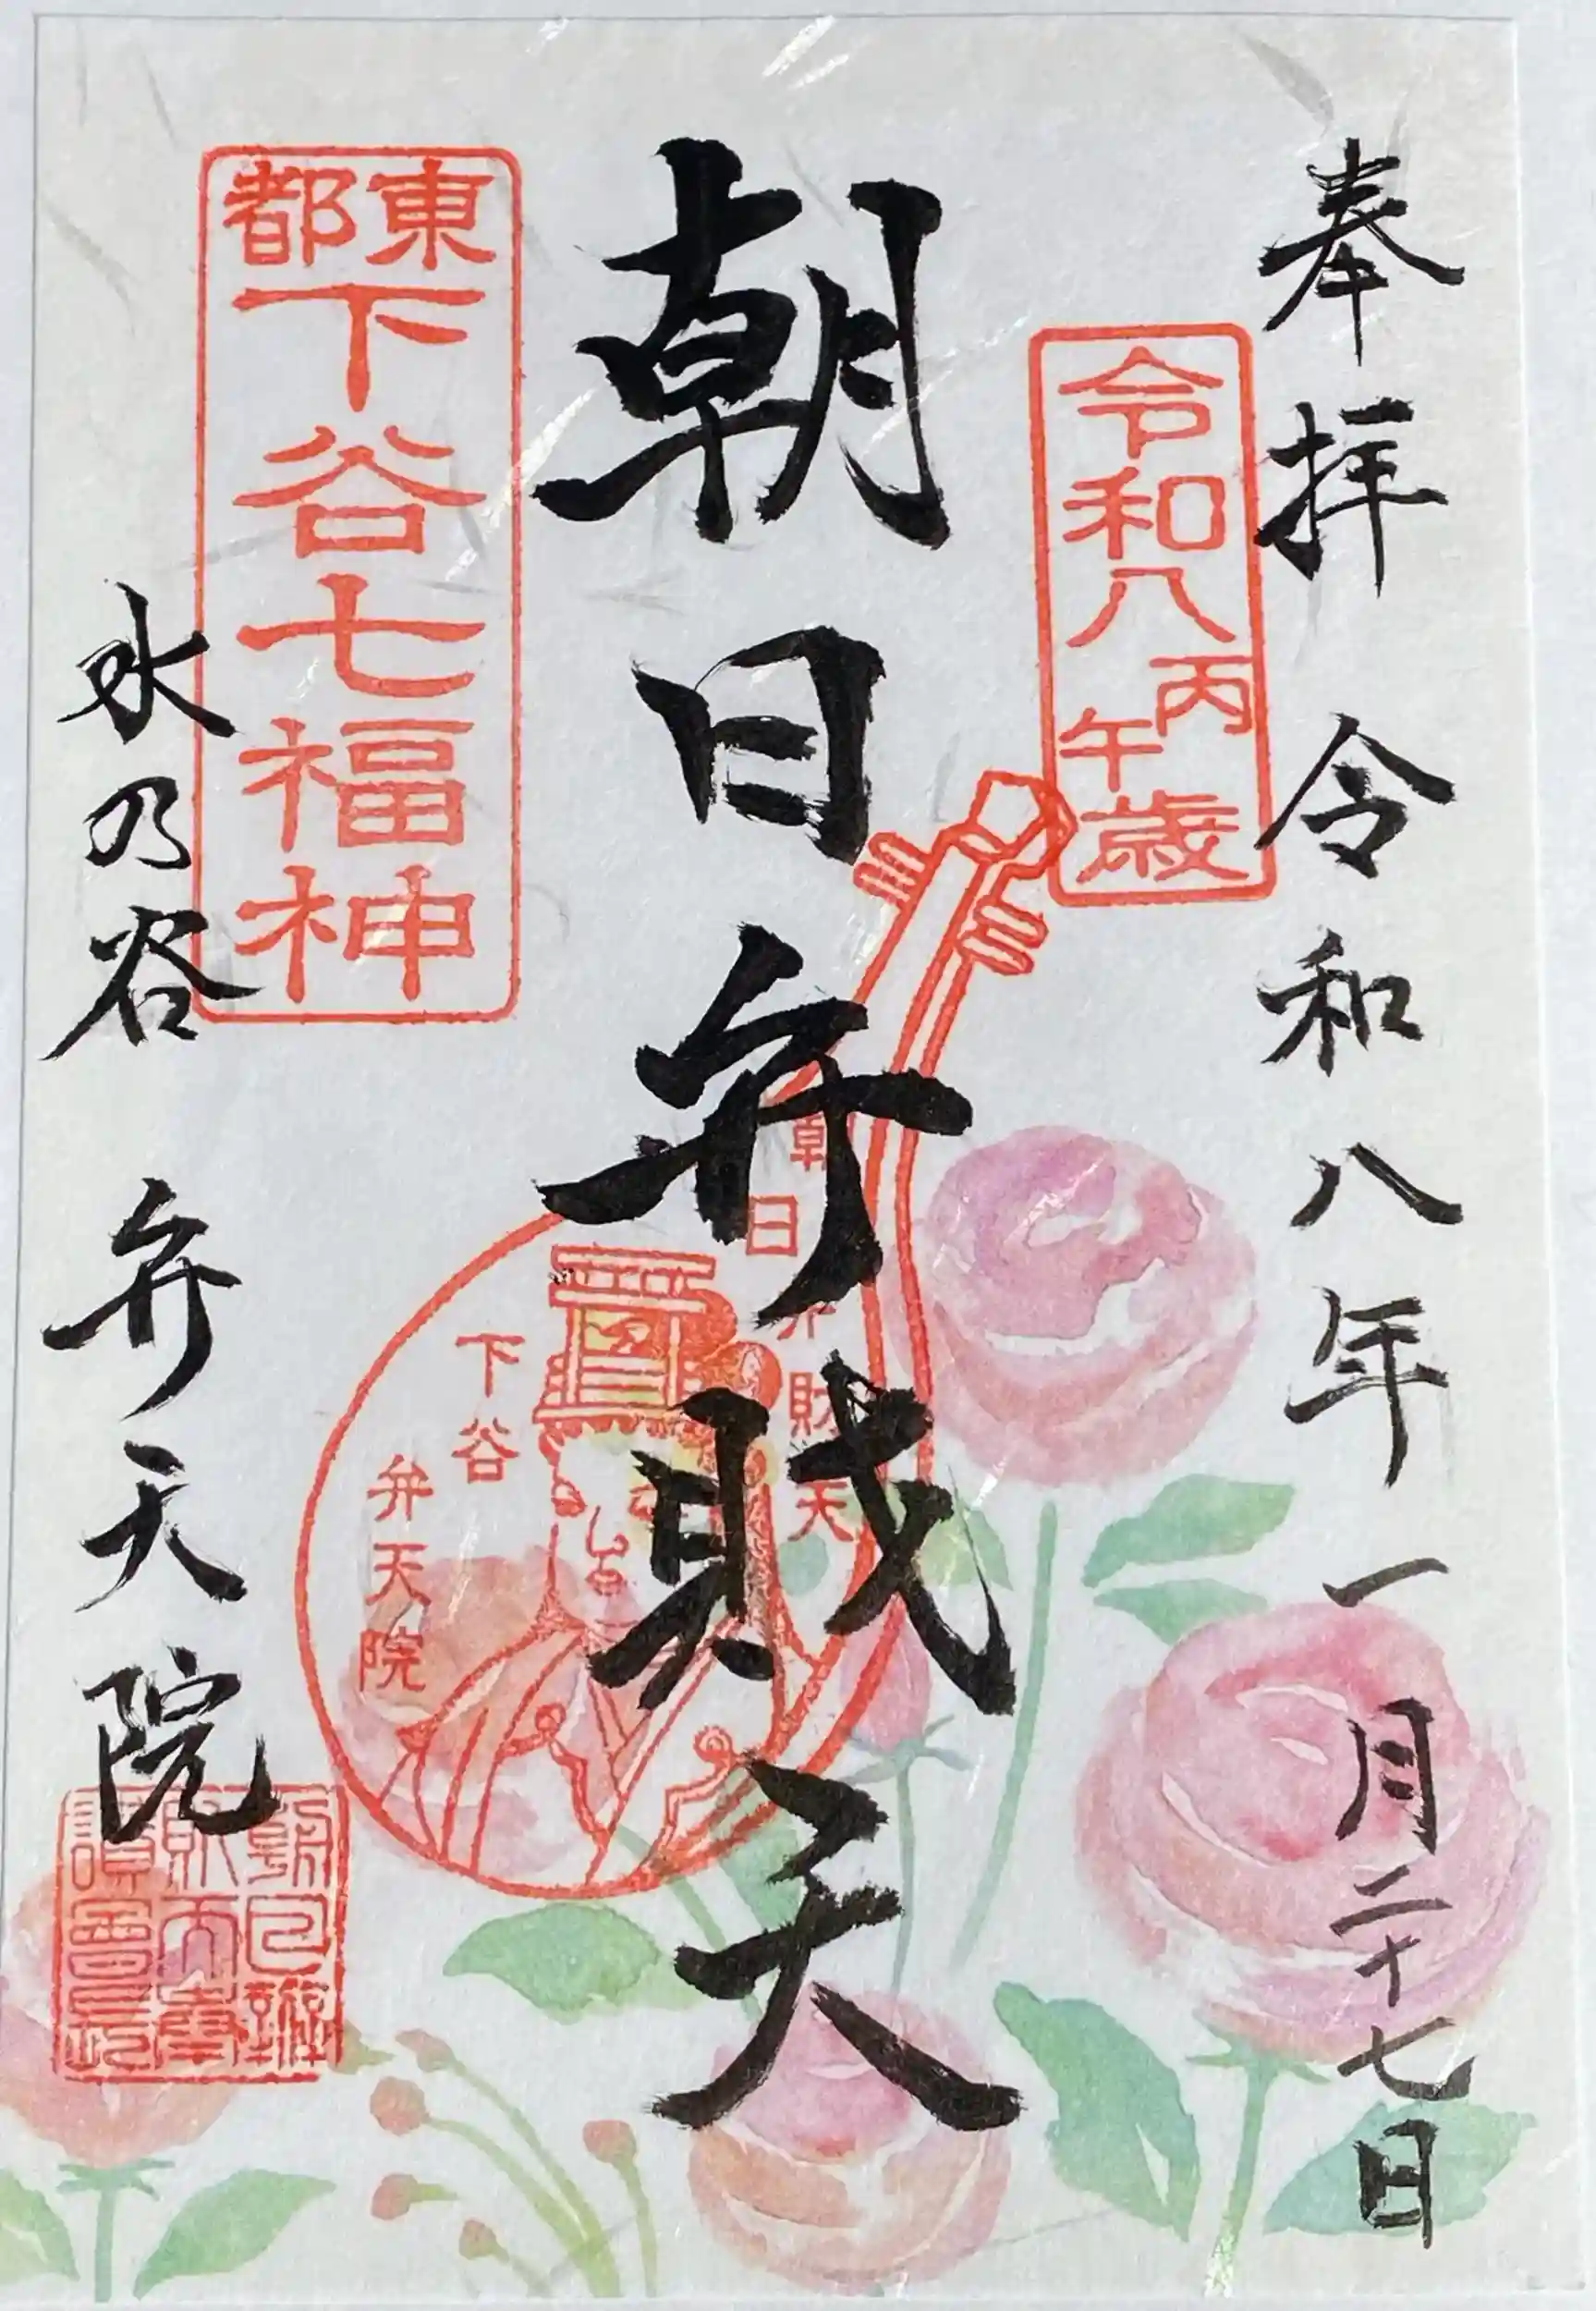 奉拝 令和八年一月二十七日
令和八丙午歳
朝日弁財天
東都下谷七福神
朝日弁財天
下谷
弁天院
水の谷 弁天院